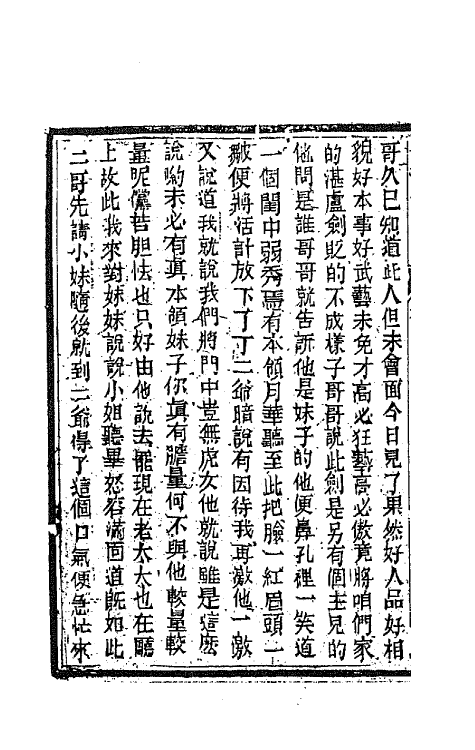 哥久已知道此人但未會面今日見了果然好人品好相
貌好本事好武藝未免才高必狂藝高必傲竟將咱們家
的湛盧劍貶的不成樣子哥哥說此劍是另有個主見的
他問是誰哥哥就告訴他是妹子的他便鼻孔裡一笑道
一個閨中弱秀焉有本領月華聽至此把臉一紅眉頭一
皺便將活計放下了丁二爺暗說有因待我再激他一激
又說道我就說我們將門中豈無虎女他就說雖是這麽
說喲未必有眞本領妹子你眞有膽量何不與他較量較
量呢儻若胆怯也只好由他說去罷現在老太太也在廳
上故此我來對妹妹說說小姐聽畢怒容滿面道旣如此
二哥先請小妹隨後就到二爺得了這個口氣便急忙來